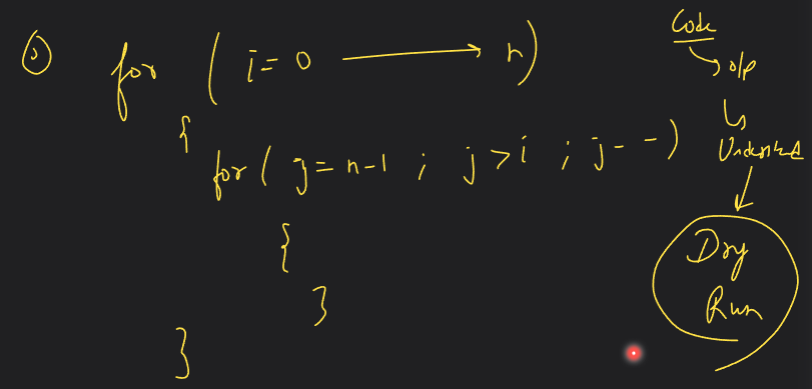 ① for ( i = 0 → n )
{
for ( j = n-1 ; j > i ; j-- )
{
}
}
Code
↳ o/p
↳ Understand
↓
Dry
Run